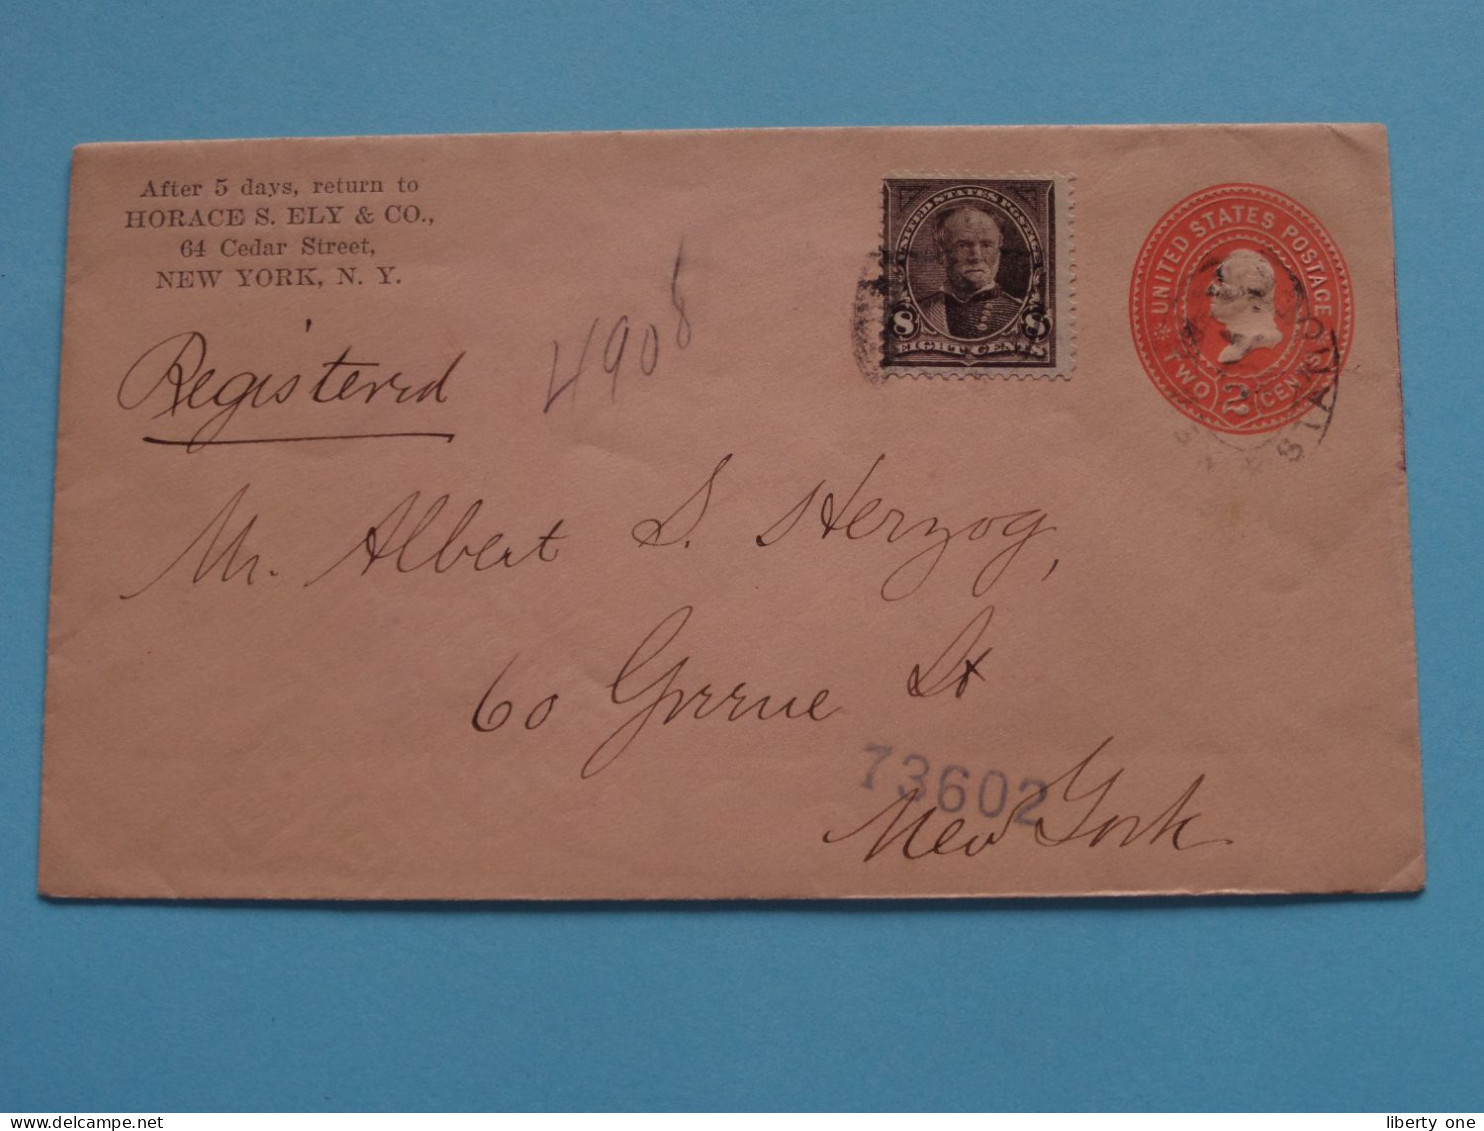 After 5 days, return to
HORACE S. ELY & CO.,
64 Cedar Street,
NEW YORK, N. Y.
UNITED STATES POSTAGE
8 8
EIGHT CENTS
UNITED STATES POSTAGE
TWO 2 CENTS
Registered
4908
Mr. Albert S. Herzog,
60 Greene St
73602
New York
liberty one